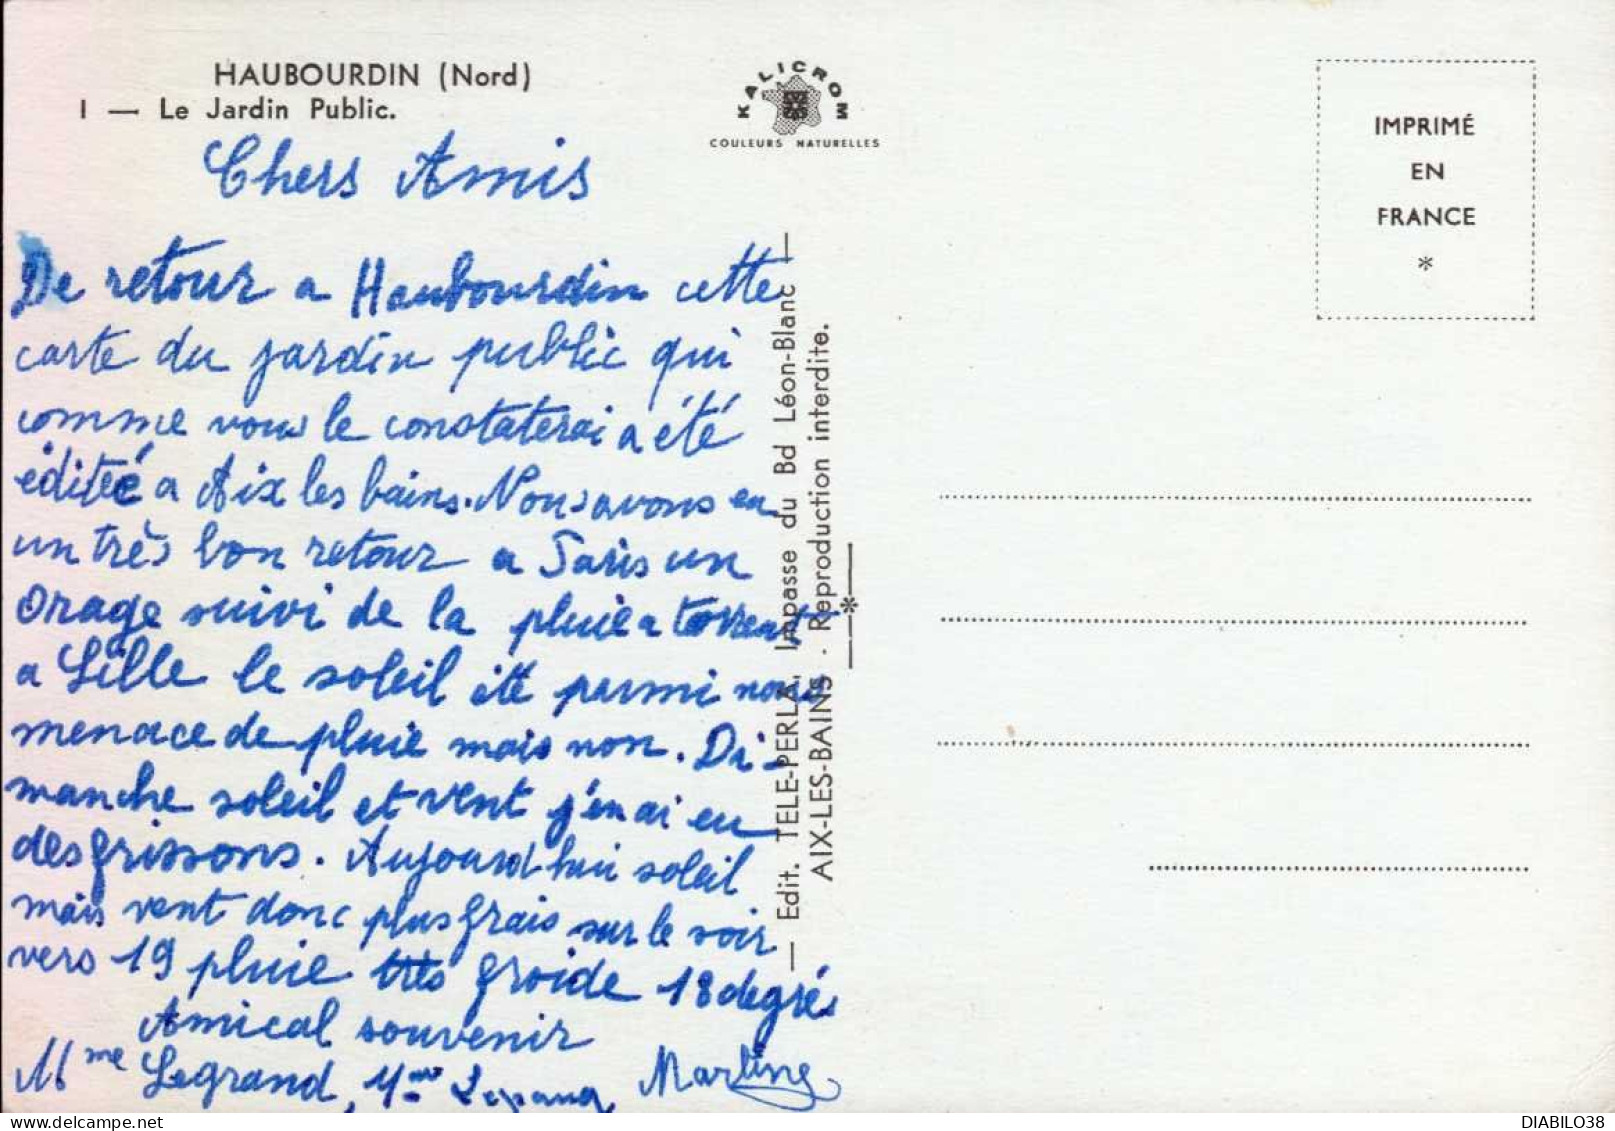 HAUBOURDIN (Nord)
I — Le Jardin Public.
KALICROM
COULEURS NATURELLES
IMPRIMÉ
EN
FRANCE
*
Chers Amis
De retour a Haubourdin cette
carte du jardin public qui
comme vous le constaterai a été
éditéé a Aix les bains. Nous avons eu
un très bon retour a Paris un
orage suivi de la pluie a torrent
a Lille le soleil été parmi nous
menace de pluie mais non. Di-
manche soleil et vent j'en ai eu
des frissons. Aujourd hui soleil
mais vent donc plus frais sur le soir
vers 19 pluie très froide 18 degrés
Amical souvenir
Mme Legrand, Martine
— Edit. TELE-PERLA, Impasse du Bd Léon-Blanc —
AIX-LES-BAINS - Reproduction interdite.
*
DIABILO38